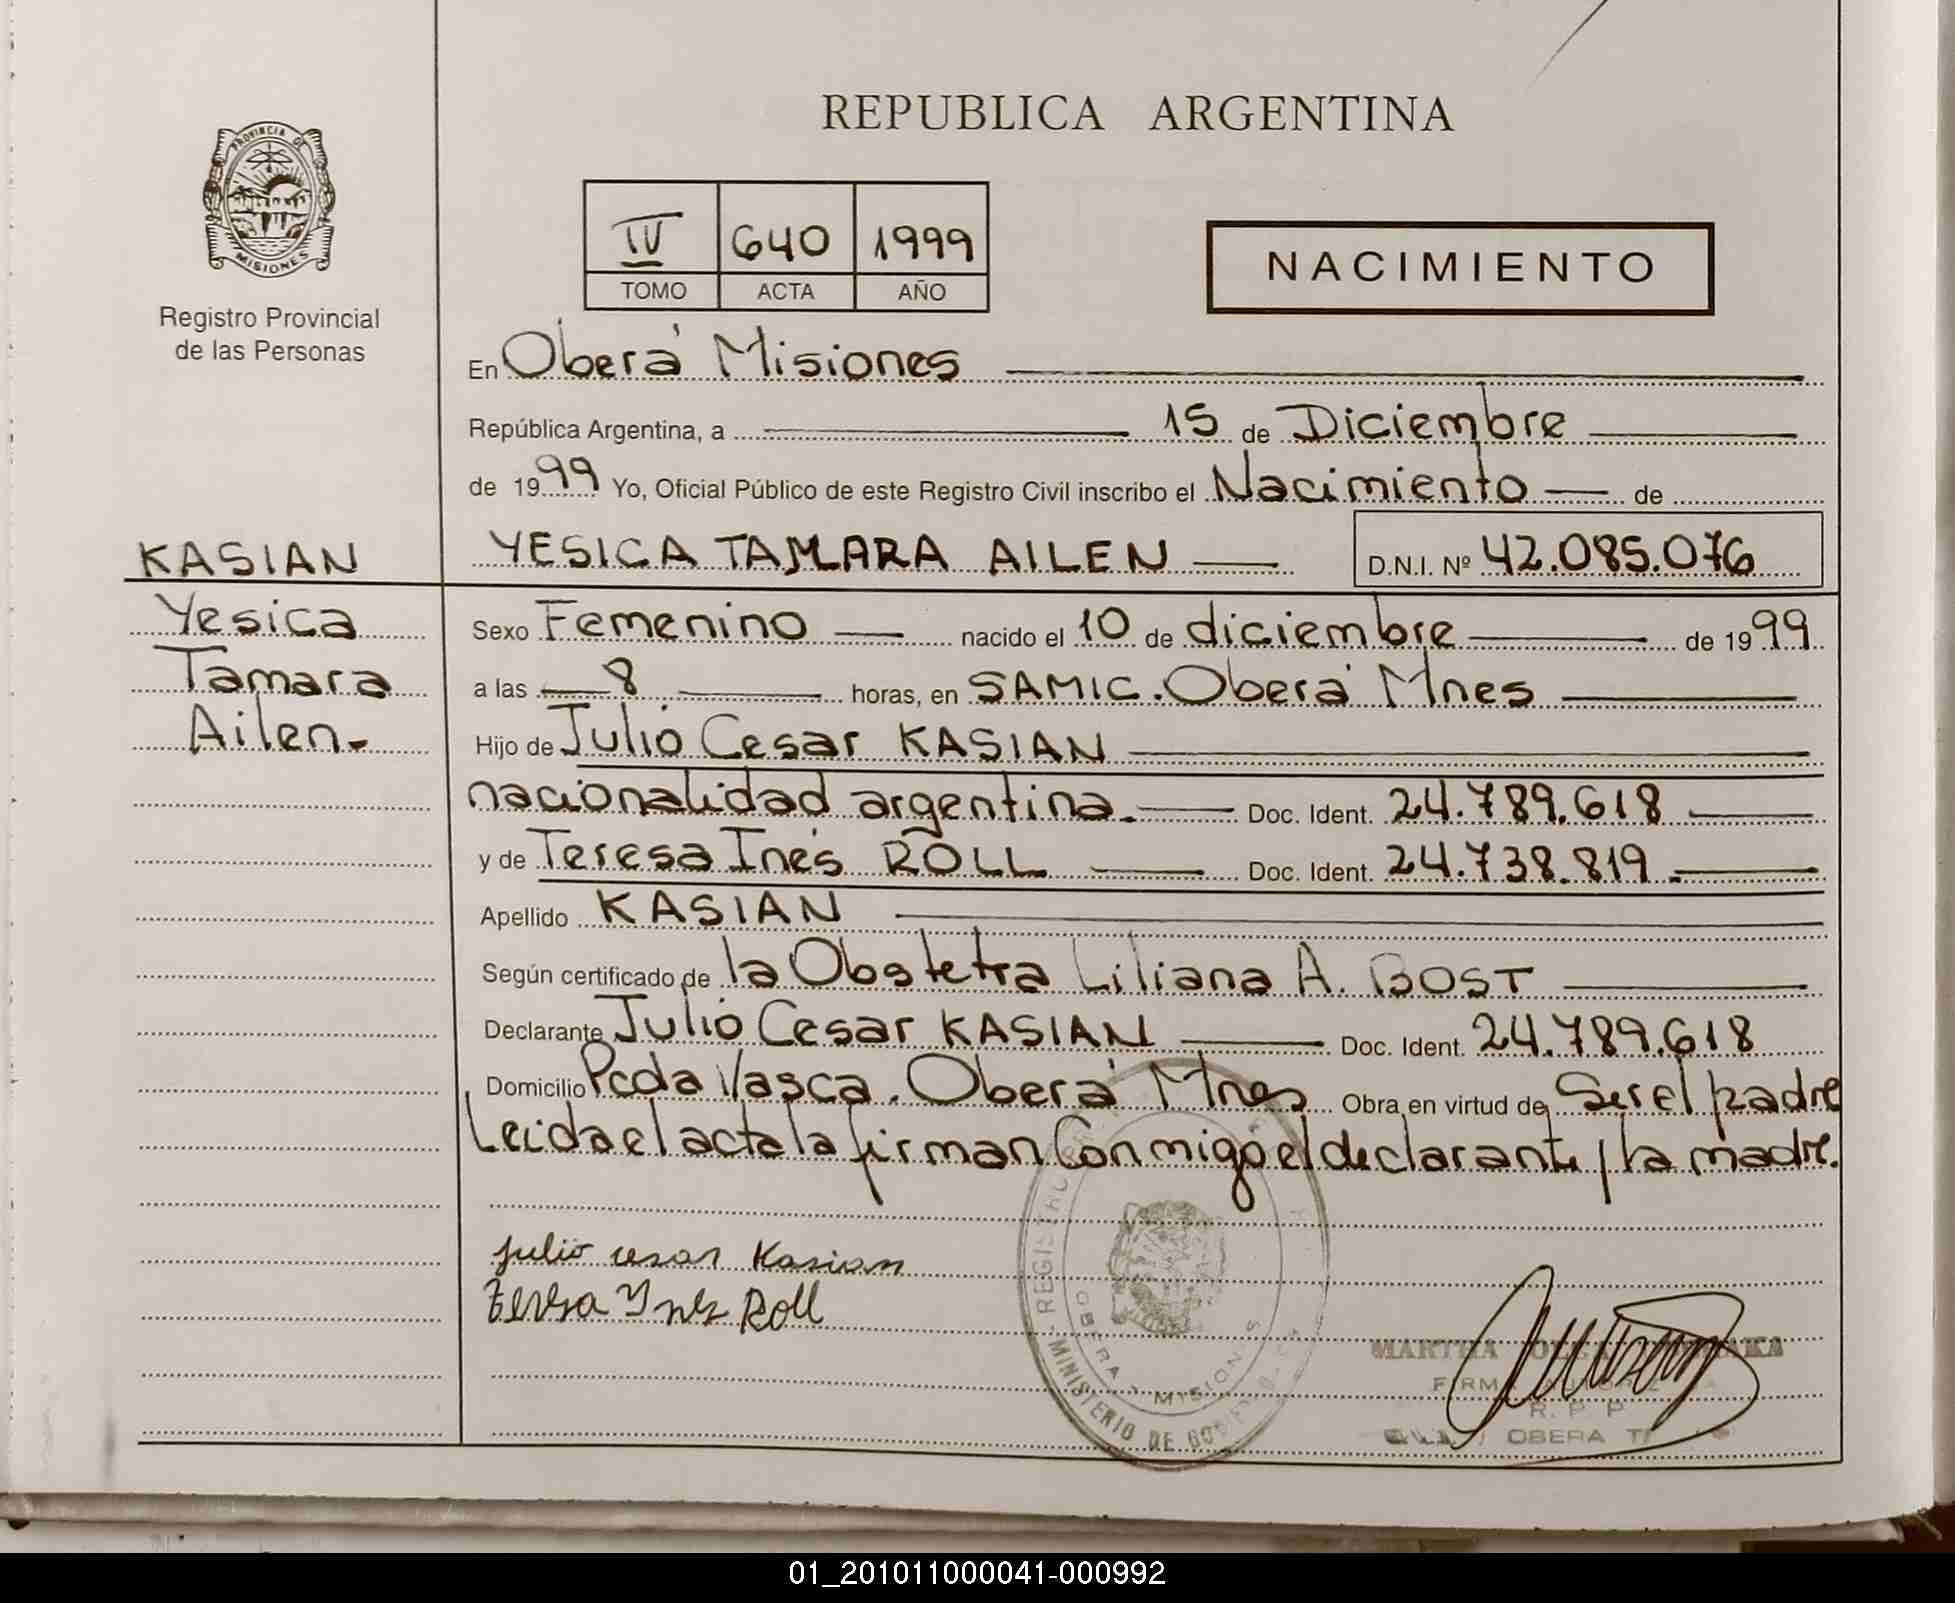 REPUBLICA ARGENTINA
PROVINCIA DE
MISIONES
Registro Provincial
de las Personas
IV 640 1999
TOMO ACTA AÑO
NACIMIENTO
En Oberá Misiones
República Argentina, a 15 de Diciembre
de 1999 Yo, Oficial Público de este Registro Civil inscribo el Nacimiento de
KASIAN
Yesica
Tamara
Ailen.
YESICA TAMARA AILEN D.N.I. Nº 42.085.076
Sexo Femenino nacido el 10 de diciembre de 1999
a las 8 horas, en SAMIC. Oberá Mnes
Hijo de Julio Cesar KASIAN
nacionalidad argentina. Doc. Ident. 24.789.618
y de Teresa Inés ROLL Doc. Ident. 24.738.819.
Apellido KASIAN
Según certificado de la Obstetra Liliana A. BOST
Declarante Julio Cesar KASIAN Doc. Ident. 24.789.618
Domicilio Pcda Vasca. Oberá Mnes Obra en virtud de Ser el padre
Leida el acta la firman Conmigo el declarante y la madre.
julio cesar Kasian
Teresa Ynes Roll
MINISTERIO DE
OBERA MISIONES
MARTHA
R. P. P
OBERA
01_201011000041-000992